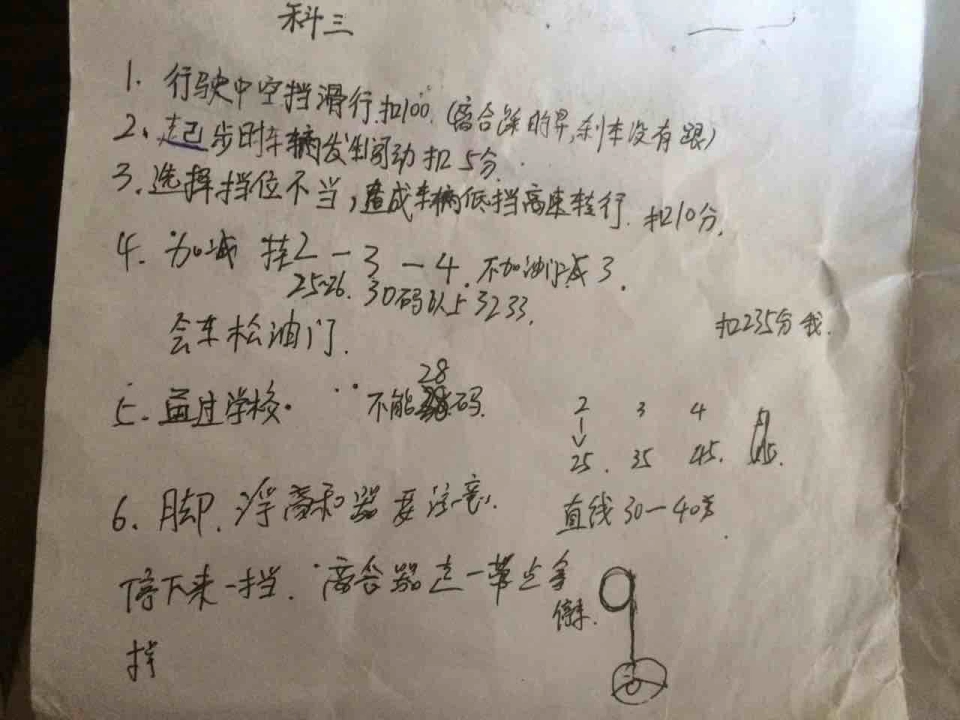 科三
1. 行驶中空挡滑行.扣100.(离合踩的早,刹车没有跟)
2、起步时车辆发生闯动扣5分.
3.选择挡位不当,造成车辆低挡高速转行.扣10分.
4. 加减 挂2 — 3 — 4. 不加油门减3.
25~26. 30码以上 32 33.
会车松油门.
扣235分 我.
5. 通过学校. 不能28码.
2 3 4
25. 35 45.
6. 脚.浮离和器要注意.
直线 30—40多
停下来一挡.离合器走一带点拿
停车.
挡